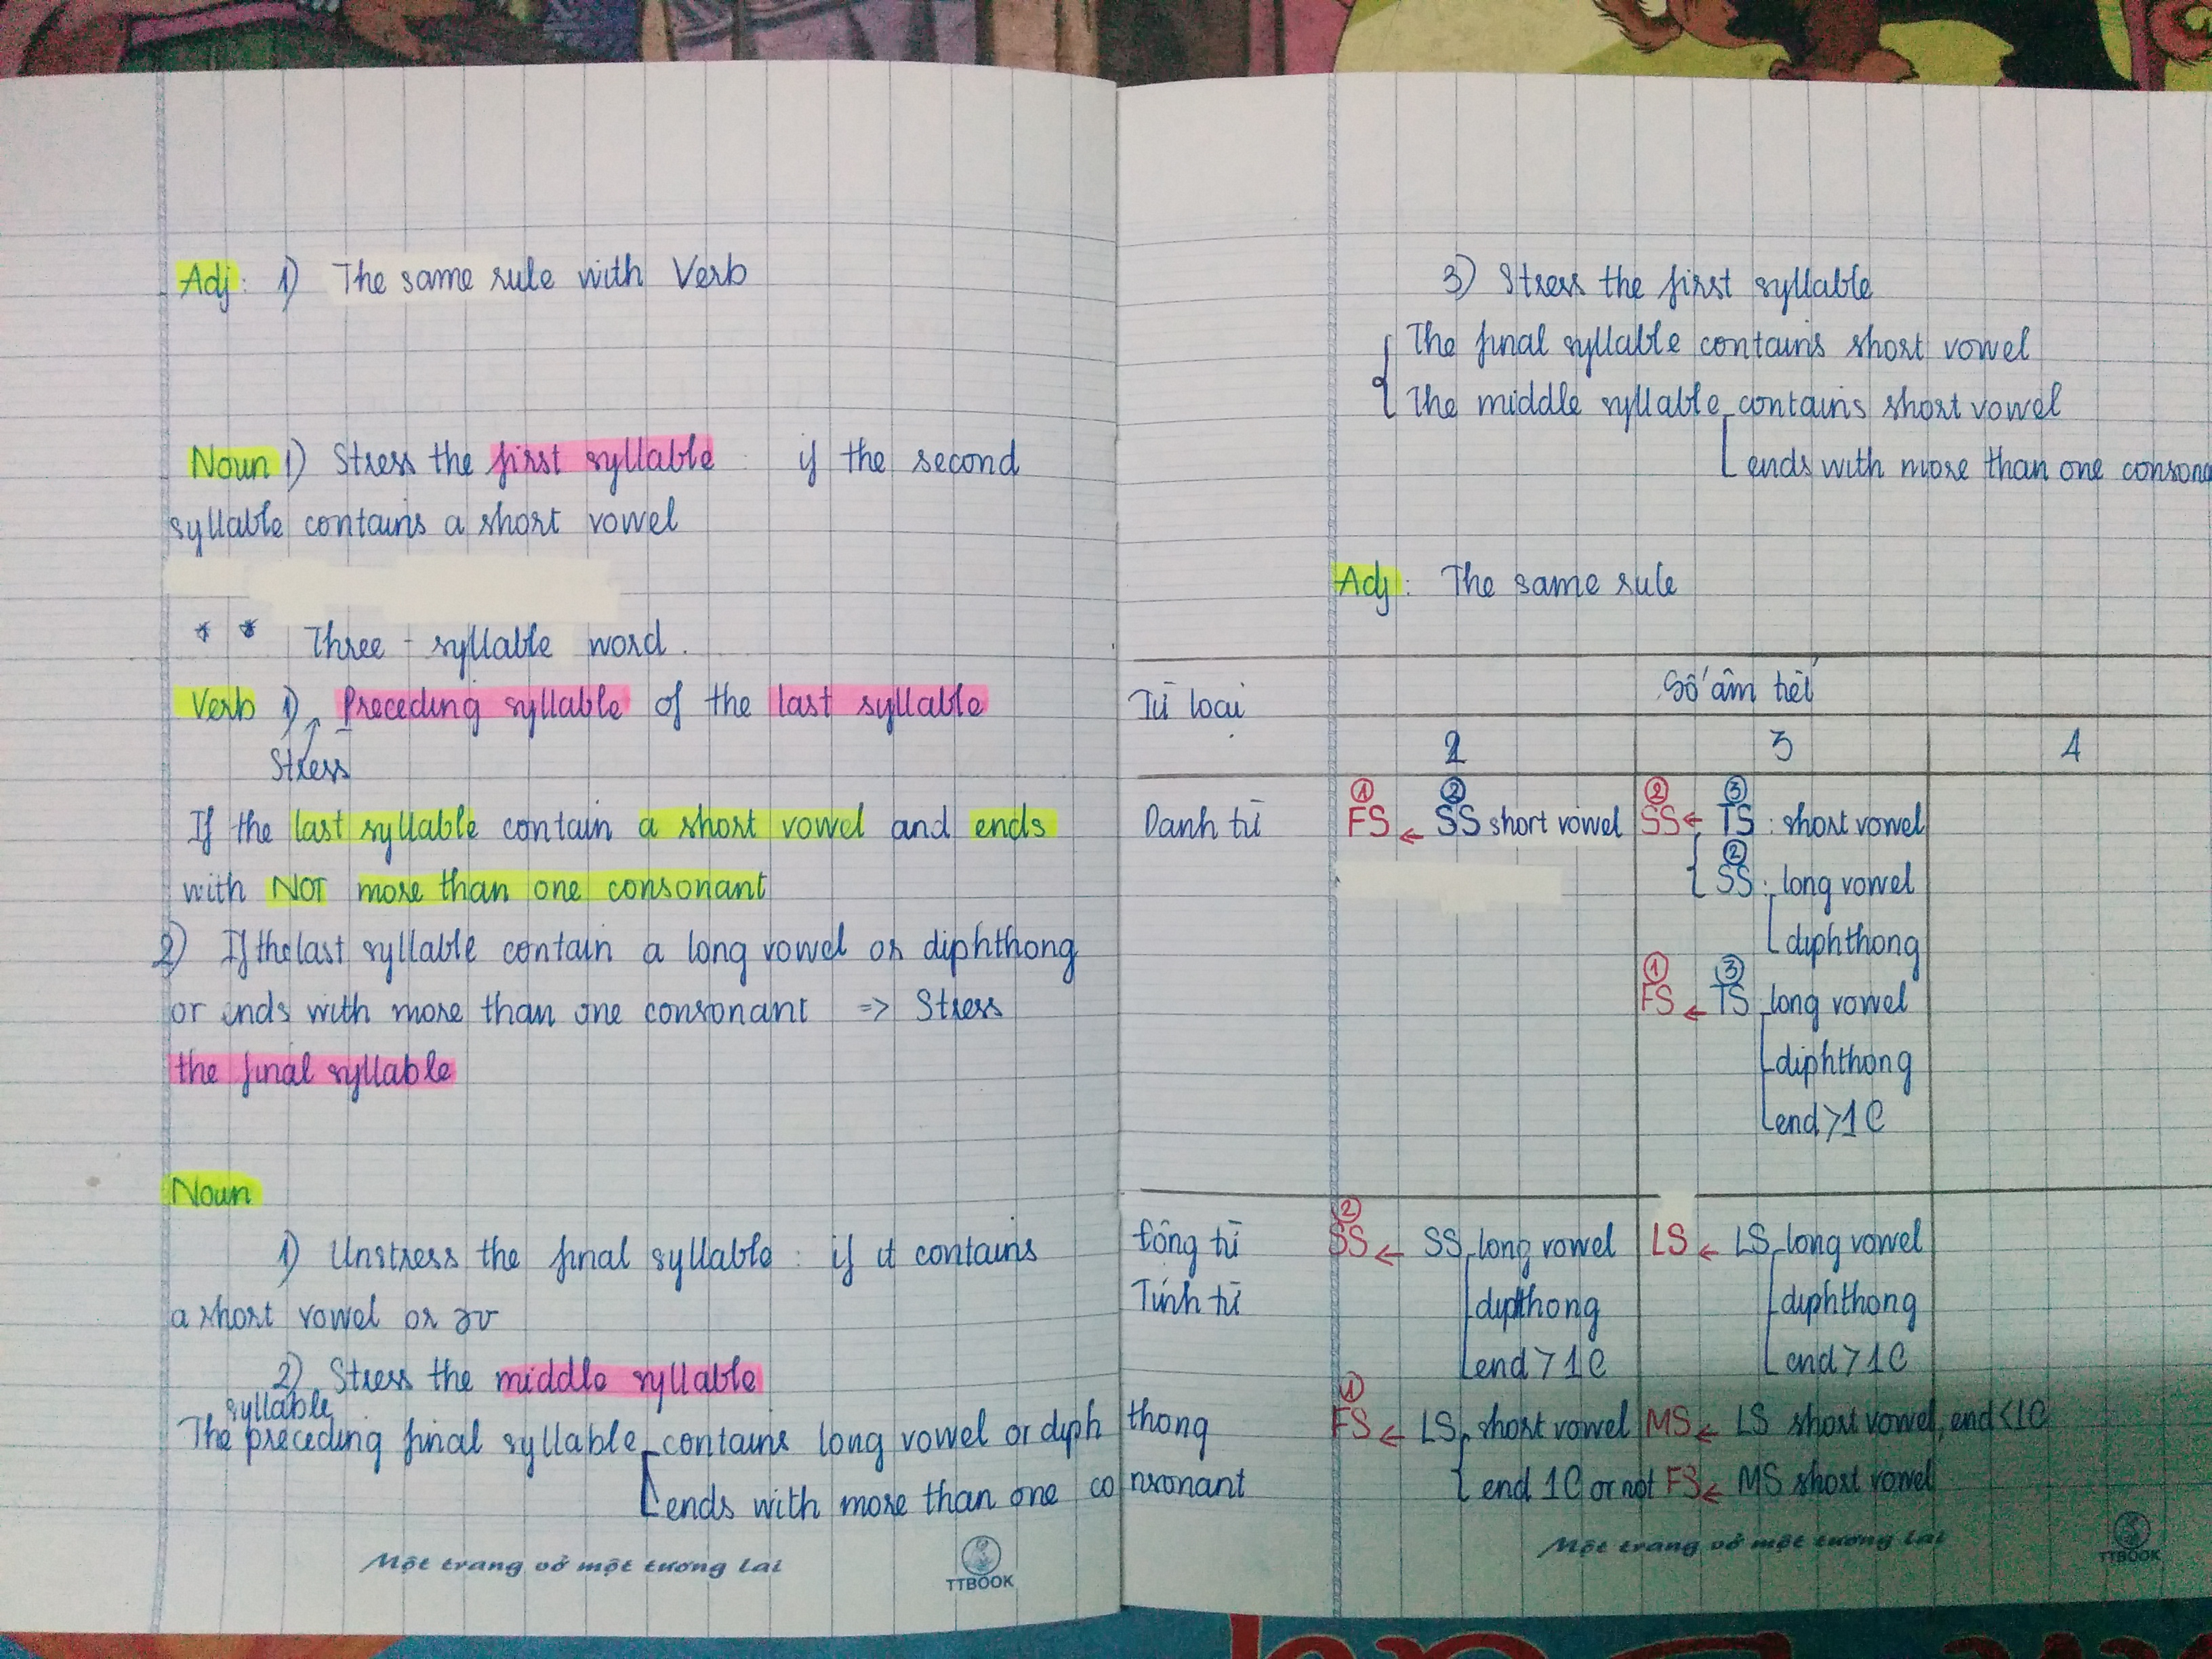 Adj: 1) The same rule with Verb
Noun 1) Stress the first syllable : if the second
syllable contains a short vowel
* * Three - syllable word.
Verb 1) Preceding syllable of the last syllable
Stress
If the last syllable contain a short vowel and ends
with NOT more than one consonant
2) If the last syllable contain a long vowel or diphthong
or ends with more than one consonant => Stress
the final syllable
Noun
1) Unstress the final syllable : if it contains
a short vowel or əʊ
2) Stress the middle syllable
syllable
The preceding final syllable contains long vowel or diphthong
ends with more than one consonant
Một trang vở một tương lai
TTBOOK
3) Stress the first syllable
The final syllable contains short vowel
The middle syllable contains short vowel
ends with more than one
Adj: The same rule
Từ loại Số âm tiết
2 3 4
① ② ② ③
Danh từ FS ← SS short vowel SS ← TS : short vowel
②
SS : long vowel
diphthong
① ③
FS ← TS long vowel
diphthong
end > 1 C
②
Động từ SS ← SS long vowel LS ← LS long vowel
Tính từ diphthong diphthong
end > 1 C end > 1 C
①
FS ← LS short vowel MS ← LS short vowel, end < 1C
end 1C or not FS ← MS short vowel
Một trang vở một tương lai
TTBOOK